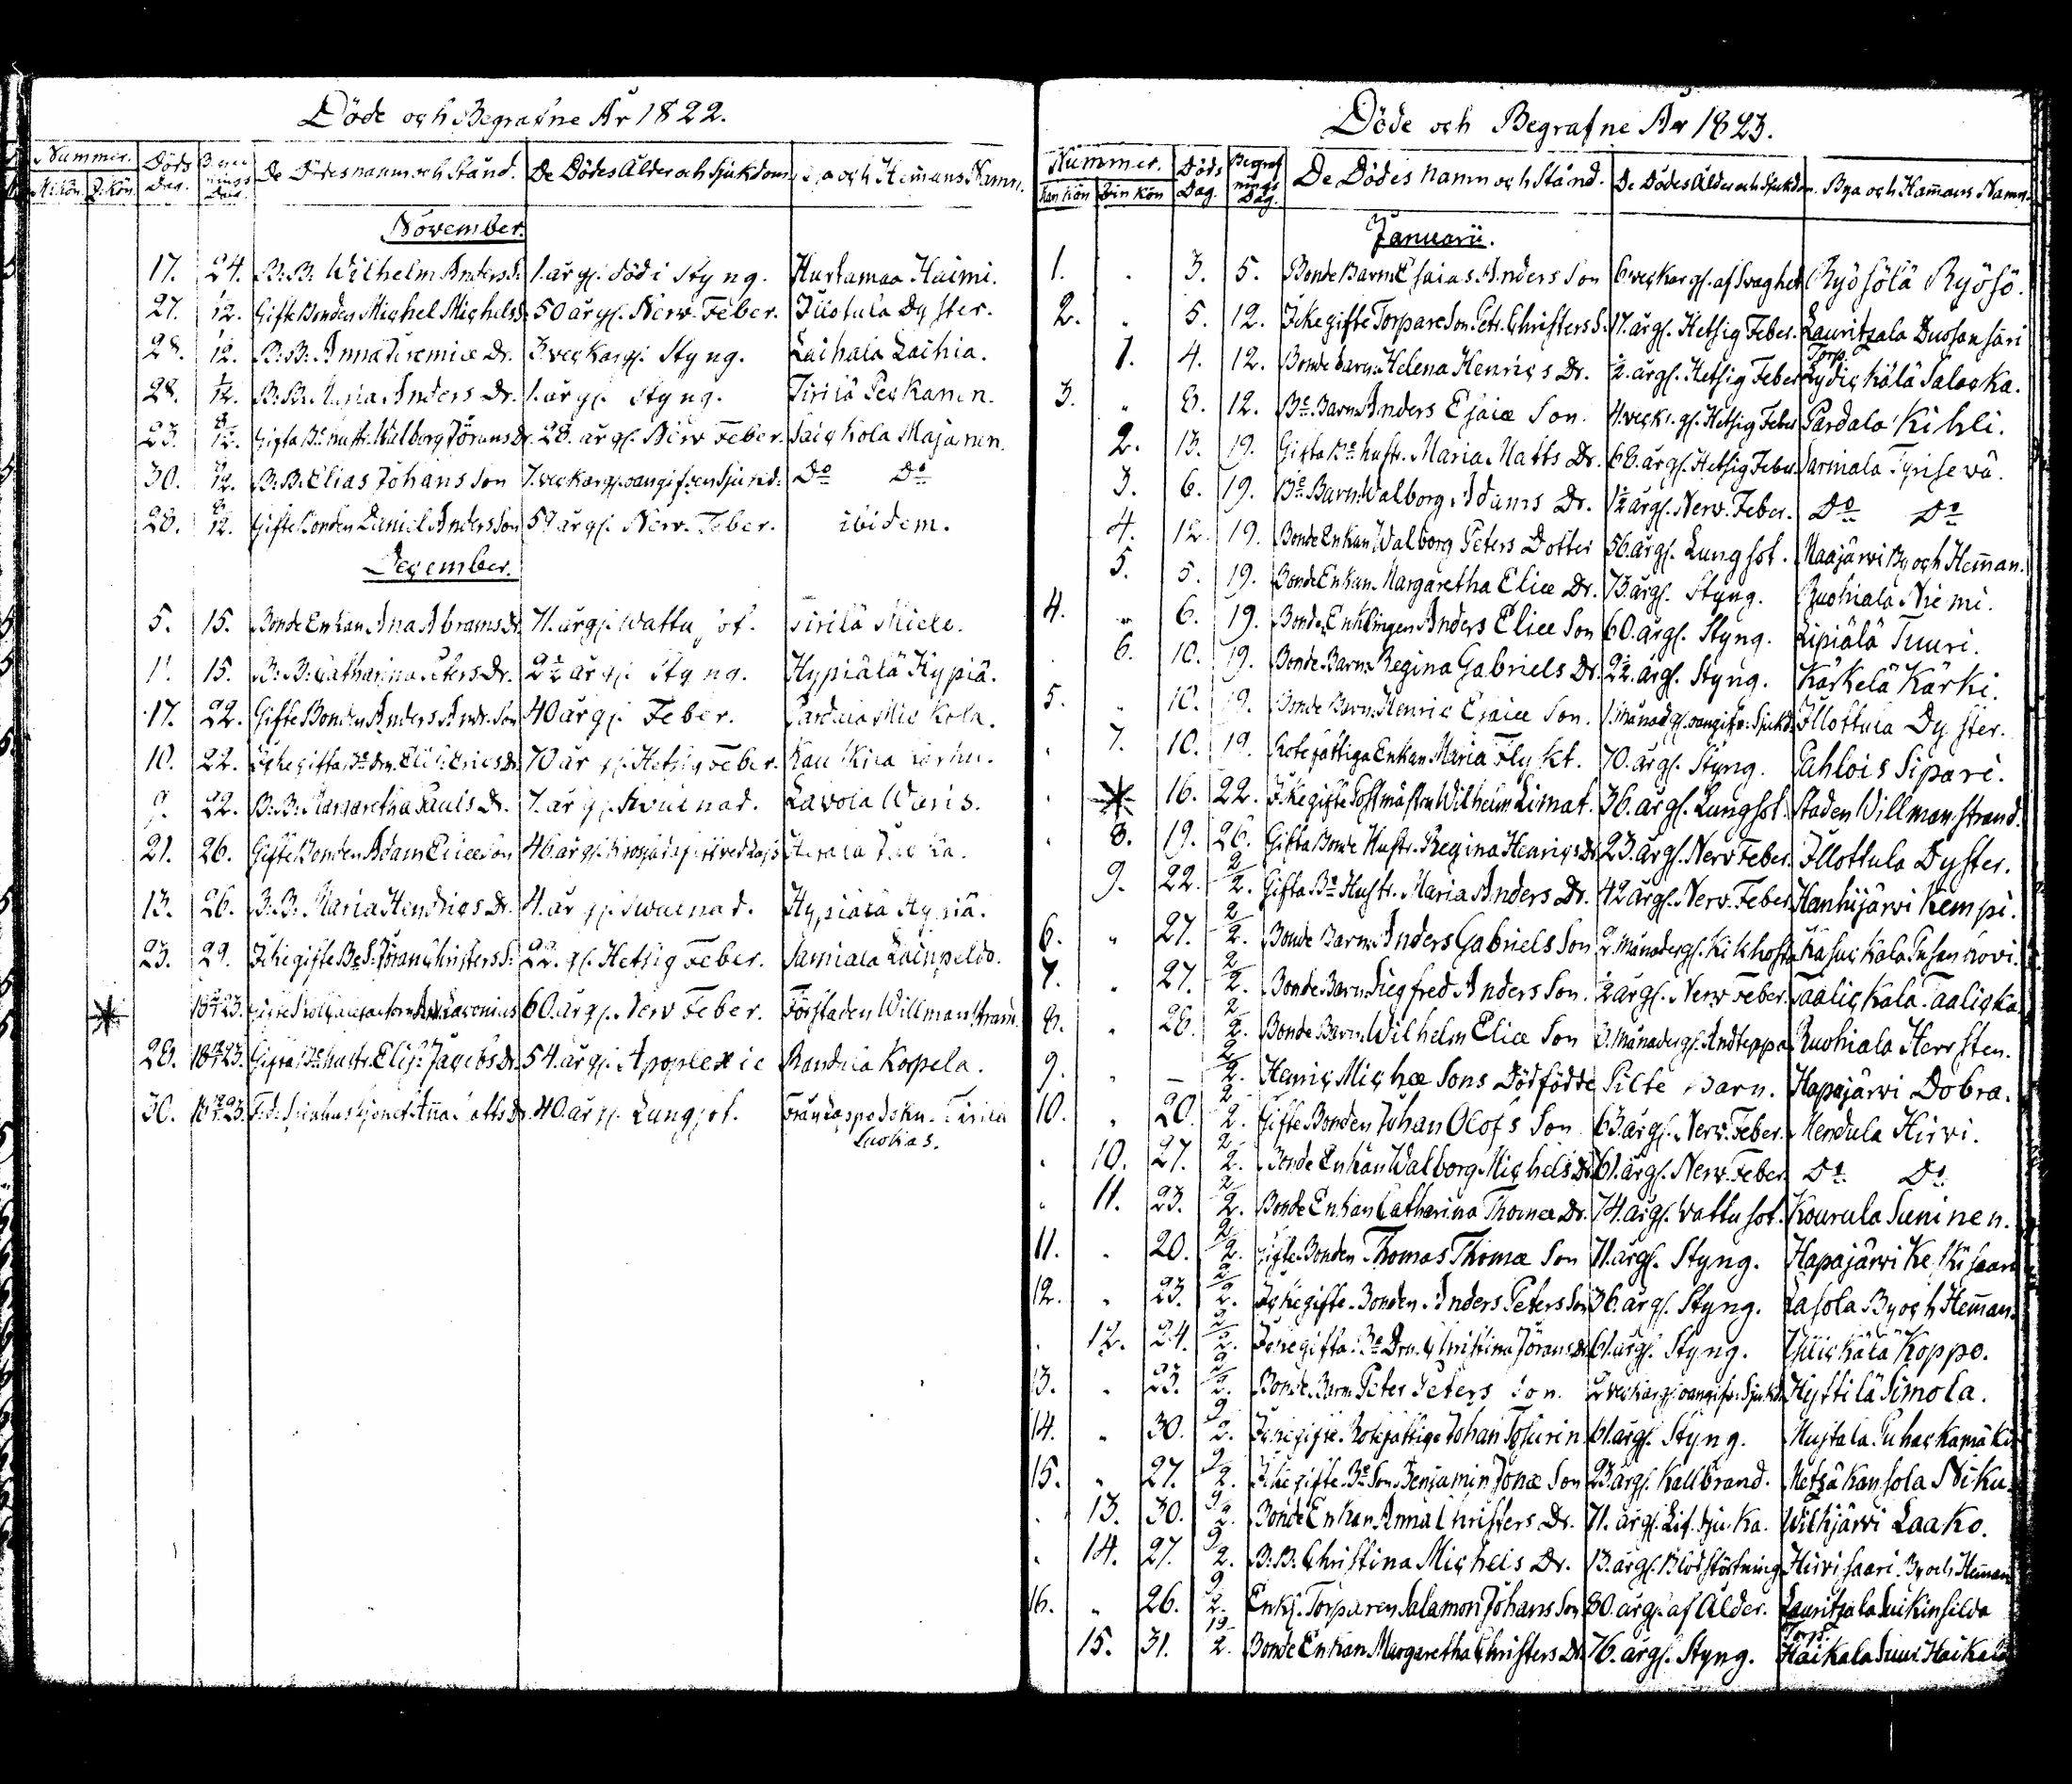 Döde och Begrafne År 1822.
Nummer. Döds Dag. De Dödes namn och Stånd. De Dödes Ålder och Sjukdom och Hemans Namn.
M. Kön. Q. Kön.
November.
17. 24. B: B: Wilhelm Anders S: 1. år gl. död i Styng. Hurtamaa Haimi.
27. 1/12. Gifte Bonden Michel Michels S 50 år gl. Nerv. Feber. Illotula Dyster.
28. 1/12. B: B: Anna Jeremiæ Dr. 3 veckor gl. Styng. Laihala Laihia.
28. 1/12. B: B: Maria Anders Dr. 1. år gl. Styng. Tirilä Peckanen.
23. 8/12. Gifta Be hustr. Walborg Jörans Dr. 28. år gl. Nerv Feber. Saickola Majanen.
30. B: B: Elias Johans Son 7. veckor gl. oangifven Sjukd: Do Do
28. 8/12. Gifte Bonden Daniel Anders Son 57 år gl. Nerv. Feber. ibidem.
December.
5. 15. Bonde Enkan Ana Abrams Dr 71. år gl. Wattusot. Tirilä Miele.
11 15. B: B: Catharina Peters Dr. 2½ år gl. Styng. Hypiälä Hypiä.
17. 22. Gifte Bonden Anders Andr. Son 40 år gl. Feber. Pardala Mickola.
10. 22. Ickegifta Be Dr. Elis: Erics Dr 70 år gl. Hetsig Feber. Kauskila
9. 22. B: B: Margaretha Pauls Dr. 7. år gl. Swulnad. Lavola Waris.
21. 26. Gifte Bonden Adam Ericæ Son 46. år gl.
13. 26. B: B: Maria Hendrics Dr. 4. år gl. Swulnad. Hypiälä Hypiä.
23. 29. Ickegifte Be S: Jöran Christers S: 22. gl. Hetsig Feber. Samiala Lainpeldo.
Lavonius 60. år gl. Nerv Feber. Förstaden Willmanstrand.
28. Gifta Be hustr. Elis: Jacobs Dr. 54. år gl. Apoplexie Randala Kopela.
30. Anna Matts Dr 40. år gl. Lungsot. Tirilä
Luokas.
Döde och Begrafne År 1823.
Nummer. Döds Dag. Begrafnings Dag. De Dödes Namn och Stånd. De Dödes Ålder och Sjukdom. Bya och Hemans Namn.
Man Kön Qvin Kön
Januarii.
1. 3. 5. Bonde Barn: Esaias Anders Son 6. veckor gl. af Svaghet Ryösölä Ryösö.
2. 5. 12. Ickegifte Torpare Son. Petr. Christers S. 17. år gl. Hetsig Feber. Lauritzala Duosansari Torp.
1. 4. 12. Bonde barn: Helena Henrics Dr. ½. år gl. Hetsig Feber Lydickälä Salocka.
3. 8. 12. Be Barn: Anders Esaiæ Son. 11. veck. gl. Hetsig Feber Pardala Kihli.
2. 13. 19. Gifta Be hustr. Maria Matts Dr. 68. år gl. Hetsig Feber. Sarniala Tynisevä.
3. 6. 19. Be Barn: Walborg Adams Dr. 1½ år gl. Nerv. Feber. Do Do
4. 12. 19. Bonde Enkan Walborg Peters Dotter 56. år gl. Lungsot. Haajärvi By och Heman.
5. 5. 19. Bonde Enkan Margaretha Eliæ Dr. 73. år gl. Styng. Ruohiala Niemi.
4. 6. 19. Bonde Enklingen Anders Eliæ Son 60. år gl. Styng. Lipiälä Tuuri.
6. 10. 19. Bonde Barn Regina Gabriels Dr. 2½. år gl. Styng. Kärkelä Kärki.
5. 10. 19. Bonde Barn Henric Esaiæ Son. 1. Månad gl. oangifv: Sjukd. Illottula Dyster.
7. 10. 19. Rotefattiga Enkan Maria Flykt. 70. år gl. Styng. Pahlois Sipari.
16. 22. Ickegifte Postmästn Wilhelm Limat. 36. år gl. Lungsot. Staden Villmanstrand.
8. 19. 26. Gifta Bonde Hustr. Regina Henrics Dr 23. år gl. Nerv Feber. Illottula Dyster.
9. 22. 2/2. Gifta Be Hustr. Maria Anders Dr. 42 år gl. Nerv. Feber Hanhijärvi Kempi.
6. 27. 2/2. Bonde Barn: Anders Gabriels Son 2. Månader gl. Kikhosta
7. 27. 2/2. Bonde Barn Siegfred Anders Son. ½ år gl. Nerv Feber. Taalickala Taalicka
8. 28. 2/2. Bonde Barn Wilhelm Eliæ Son 3. Månader gl. Andteppa Ruohiala Hersten.
9. – 2/2. Henric Michæ Sons Dödfödde Pilte Barn. Hapajärvi Dobra.
10. 20. 2/2. Gifte Bonden Johan Olofs Son 63. år gl. Nerv. Feber. Mendula Hirvi.
10. 27. 2/2. Bonde Enkan Walborg Michels Dr 61. år gl. Nerv. Feber Do Do
11. 23. 2/2. Bonde Enkan Catharina Thomæ Dr. 74. år gl. Wattusot. Kourula Suninen.
11. 20. 2/2. Gifte Bonden Thomas Thomæ Son 71. år gl. Styng. Hapajärvi Keskisaari
12. 23. 2/2. Ickegifte Bonden Anders Peters Son 36. år gl. Styng. Lasola By och Heman.
12. 24. 2/2. Ickegifta Be Drn. Christina Jörans Dr 61. år gl. Styng. Ylickälä Koppo.
13. 23. 2/2. Bonde Barn Peter Peters Son. 2 veckor gl. oangifv: Sjukd. Hyttilä Simola.
14. 30. 9/2. Ickegifte Rotefattige Johan Tosurin 61. år gl. Styng. Mustala Puhackamäki
15. 27. 9/2. Ickegifte Be Son Benjamin Jonæ Son 23. år gl. Kallbrand. Metzäkansola Niku
13. 30. 9/2. Bonde Enkan Anna Christers Dr. 71. år gl. Lif. Sjuka. Wilkjärvi Laako.
14. 27. 9/2. B: B: Christina Michels Dr. 13. år gl. Blodstörtning Hirvisaari By och Heman
16. 26. 9/2. Enkl. Torparen Salamon Johans Son 80. år gl. af Ålder. Lauritzala Suikinsilda Torp.
15. 31. 13/2. Bonde Enkan Margaretha Christers Dr 76. år gl. Styng. Haikala Suur Haikala